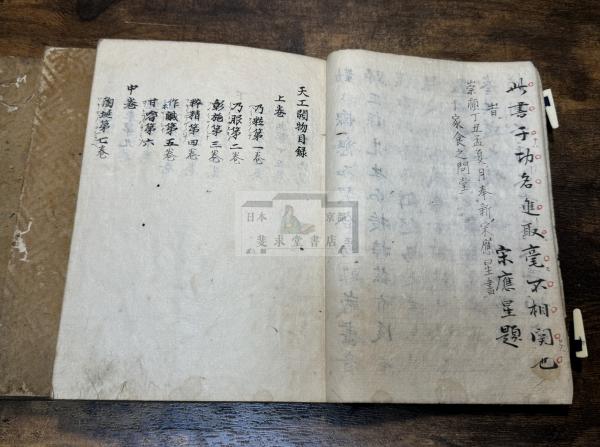 此書于功名進取毫不相関也
旹 宋應星題
崇禎丁丑孟夏月奉新宋應星書
于家食之問堂
天工開物目録
上卷
乃粒第一卷
乃服第二卷
彰施第三卷
粹精第四卷
作鹹第五卷
甘嗜第六
中卷
陶埏第七卷
日本 京都
斐求堂書店